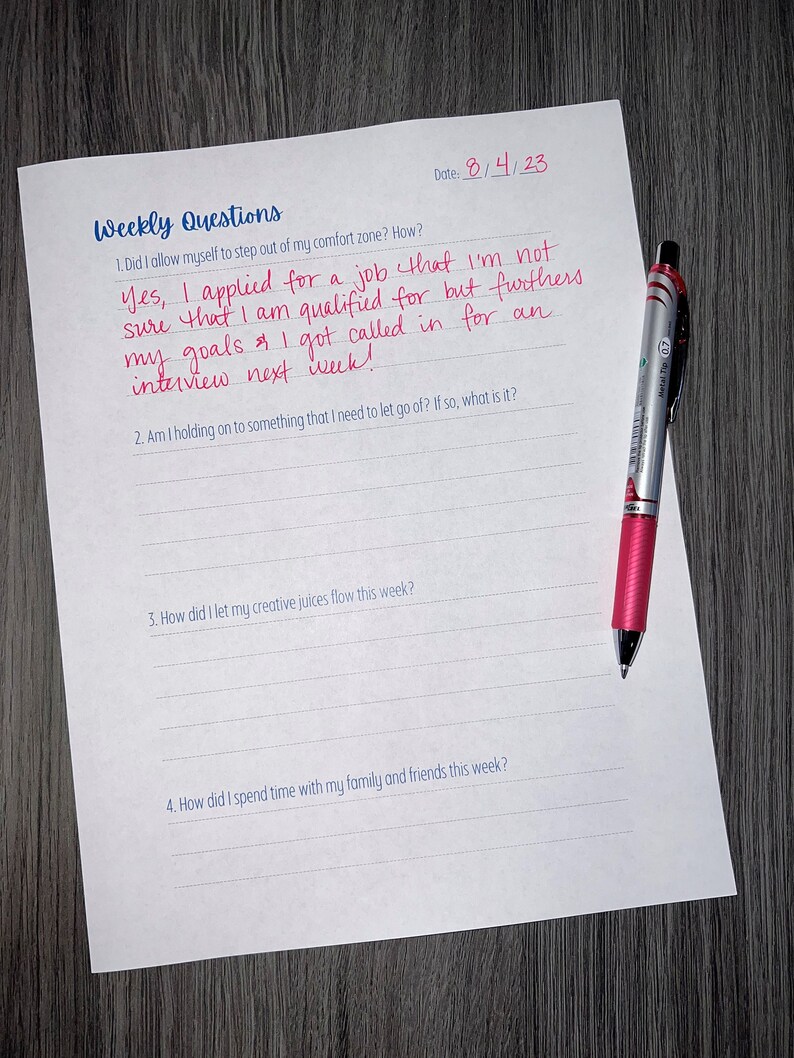 Date: 8/4/23
Weekly Questions
1. Did I allow myself to step out of my comfort zone? How?
Yes, I applied for a job that I'm not
sure that I am qualified for but furthers
my goals & I got called in for an
interview next week!
2. Am I holding on to something that I need to let go of? If so, what is it?
3. How did I let my creative juices flow this week?
4. How did I spend time with my family and friends this week?
Metal Tip 0.7